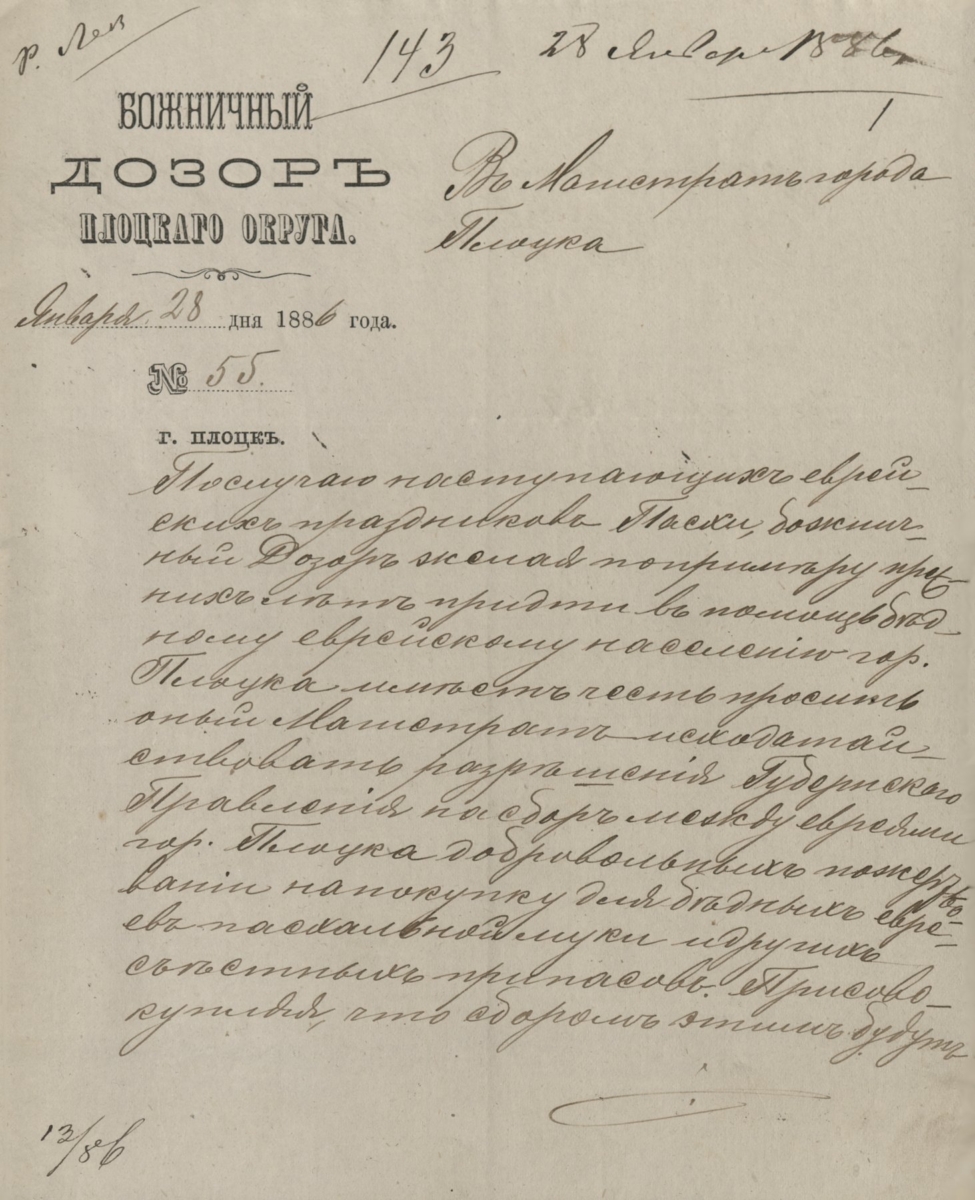 р. Лев
143
28 Январ 1886
1
БОЖНИЧНЫЙ
ДОЗОРЪ
ПЛОЦКАГО ОКРУГА.
Въ Магистратъ города
Плоцка
Января 28 дня 1886 года.
№ 55.
г. плоцкъ.
Послучаю наступающихъ еврей-
скихъ праздниковъ Пасхи, божнич-
ный Дозоръ желая попримѣру преж-
нихъ лѣтъ придти въ помощь бѣд-
ному еврейскому населенію гор.
Плоцка имѣетъ честь просить
оный Магистратъ исходатай-
ствовать разрѣшенія Губернскаго
Правленія на сборъ между евреями
гор. Плоцка добровольныхъ пожертво-
ваніи напокупку для бѣдныхъ евре-
евъ пасхальной муки идругихъ
съѣстныхъ припасовъ. Присово-
купляя, что сборомъ этимъ будутъ
13/86